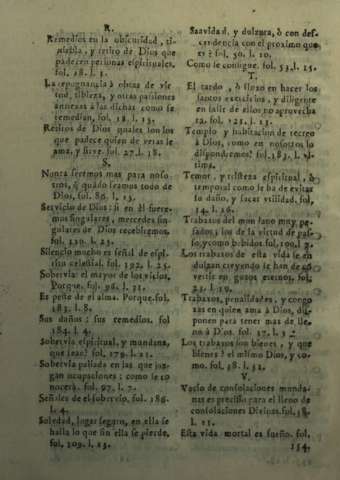 R.
Remedios en la obscuridad, ti-
niebla, y retiro de Dios que
padecen personas espirituales,
fol. 28. l. 3.
La repugnancia à obras de vir
tud, tibieza, y otras passiones
annexas à las dichas como se
remedian, fol. 18. l. 13.
Retiros de Dios quales son los
que padece quien de veras le
ama, y sirve. fol. 27. l. 18.
S.
Nunca seremos mas para noso
tros, q̃ quãdo seamos todo de
Dios, fol. 86. l. 13.
Servicio de Dios: si en èl fuere-
mos singulares, mercedes sin-
gulares de Dios recebiremos.
fol. 139. l. 23.
Silencio mucho es señal de espi
ritu celestial, fol. 192. l. 25.
Sobervia: el mayor de los vicios,
Porque. fol. 96. l. 31.
Es peste de el alma. Porque. fol.
183. l. 8.
Sus daños; sus remedios. fol
184. l. 4.
Sobervia espiritual, y mundana,
que sean? fol. 179. l. 21.
Sobervia paliada en las que juz-
gan ocupaciones; como se co
nocerà. fol. 97. l. 7.
Señales de el sobervio, fol. 186.
l. 4.
Soledad, lugar seguro, en ella se
halla lo que sin ella se pierde,
fol. 209. l. 15.
Suavidad, y dulzura, ò con des-
cendencia con el proximo que
es? fol. 50. l. 10.
Como se consigue. fol. 53. l. 15.
T.
El tardo, ò flexo en hacer los
santos exercicios, y diligente
en salir de ellos no aprovecha
ra. fol. 125. l. 13.
Templo y habitacion de recreo
à Dios, como en nosotros lo
dispondremos? fol. 183. l. ul-
tima.
Temor, y tristeza espiritual, ò
temporal como le ha de evitar
su daño, y sacar utilidad, fol,
14. l. 16.
Trabajos del mundano muy pe-
sados; los de la virtud de pas-
so, y como bibidos fol. 100. l. 7.
Los trabajos de esta vida se en
dulzan creyendo se han de co
vertir en gozos eternos. fol.
23. l. 19.
Trabajos, penalidades, y congo
xas en quien ama à Dios, dis-
ponen para tener mas de lle-
no à Dios. fol. 37. l. 3.
Los trabajos son bienes, y que
bienes? el mismo Dios, y co-
mo, fol. 38. l. 32.
V.
Vacio de consolaciones munda-
nas es preciso para el lleno de
consolaciones Divinas. fol. 38.
l. 25.
Esta vida mortal es sueño. fol.
154.